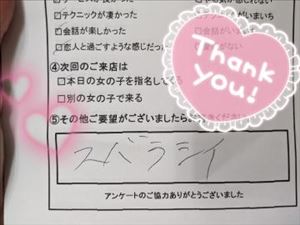 □テクニックが凄かった
□会話が楽しかった
□恋人と過ごすような感じだった
④次回のご来店は
□本日の女の子を指名して
□別の女の子で来る
⑤その他ご要望がございましたら
スバラシイ
アンケートのご協力ありがとうございました
Thank
you!